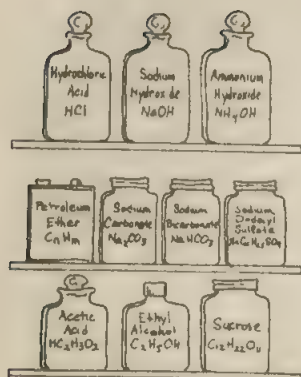 Hydrochloric
Acid
HCl
Sodium
Hydroxide
NaOH
Ammonium
Hydroxide
NH₄OH
Petroleum
Ether
CnHm
Sodium
Carbonate
Na₂CO₃
Sodium
Bicarbonate
NaHCO₃
Sodium
Dodecyl
Sulfate
Acetic
Acid
HC₂H₃O₂
Ethyl
Alcohol
C₂H₅OH
Sucrose
C₁₂H₂₂O₁₁